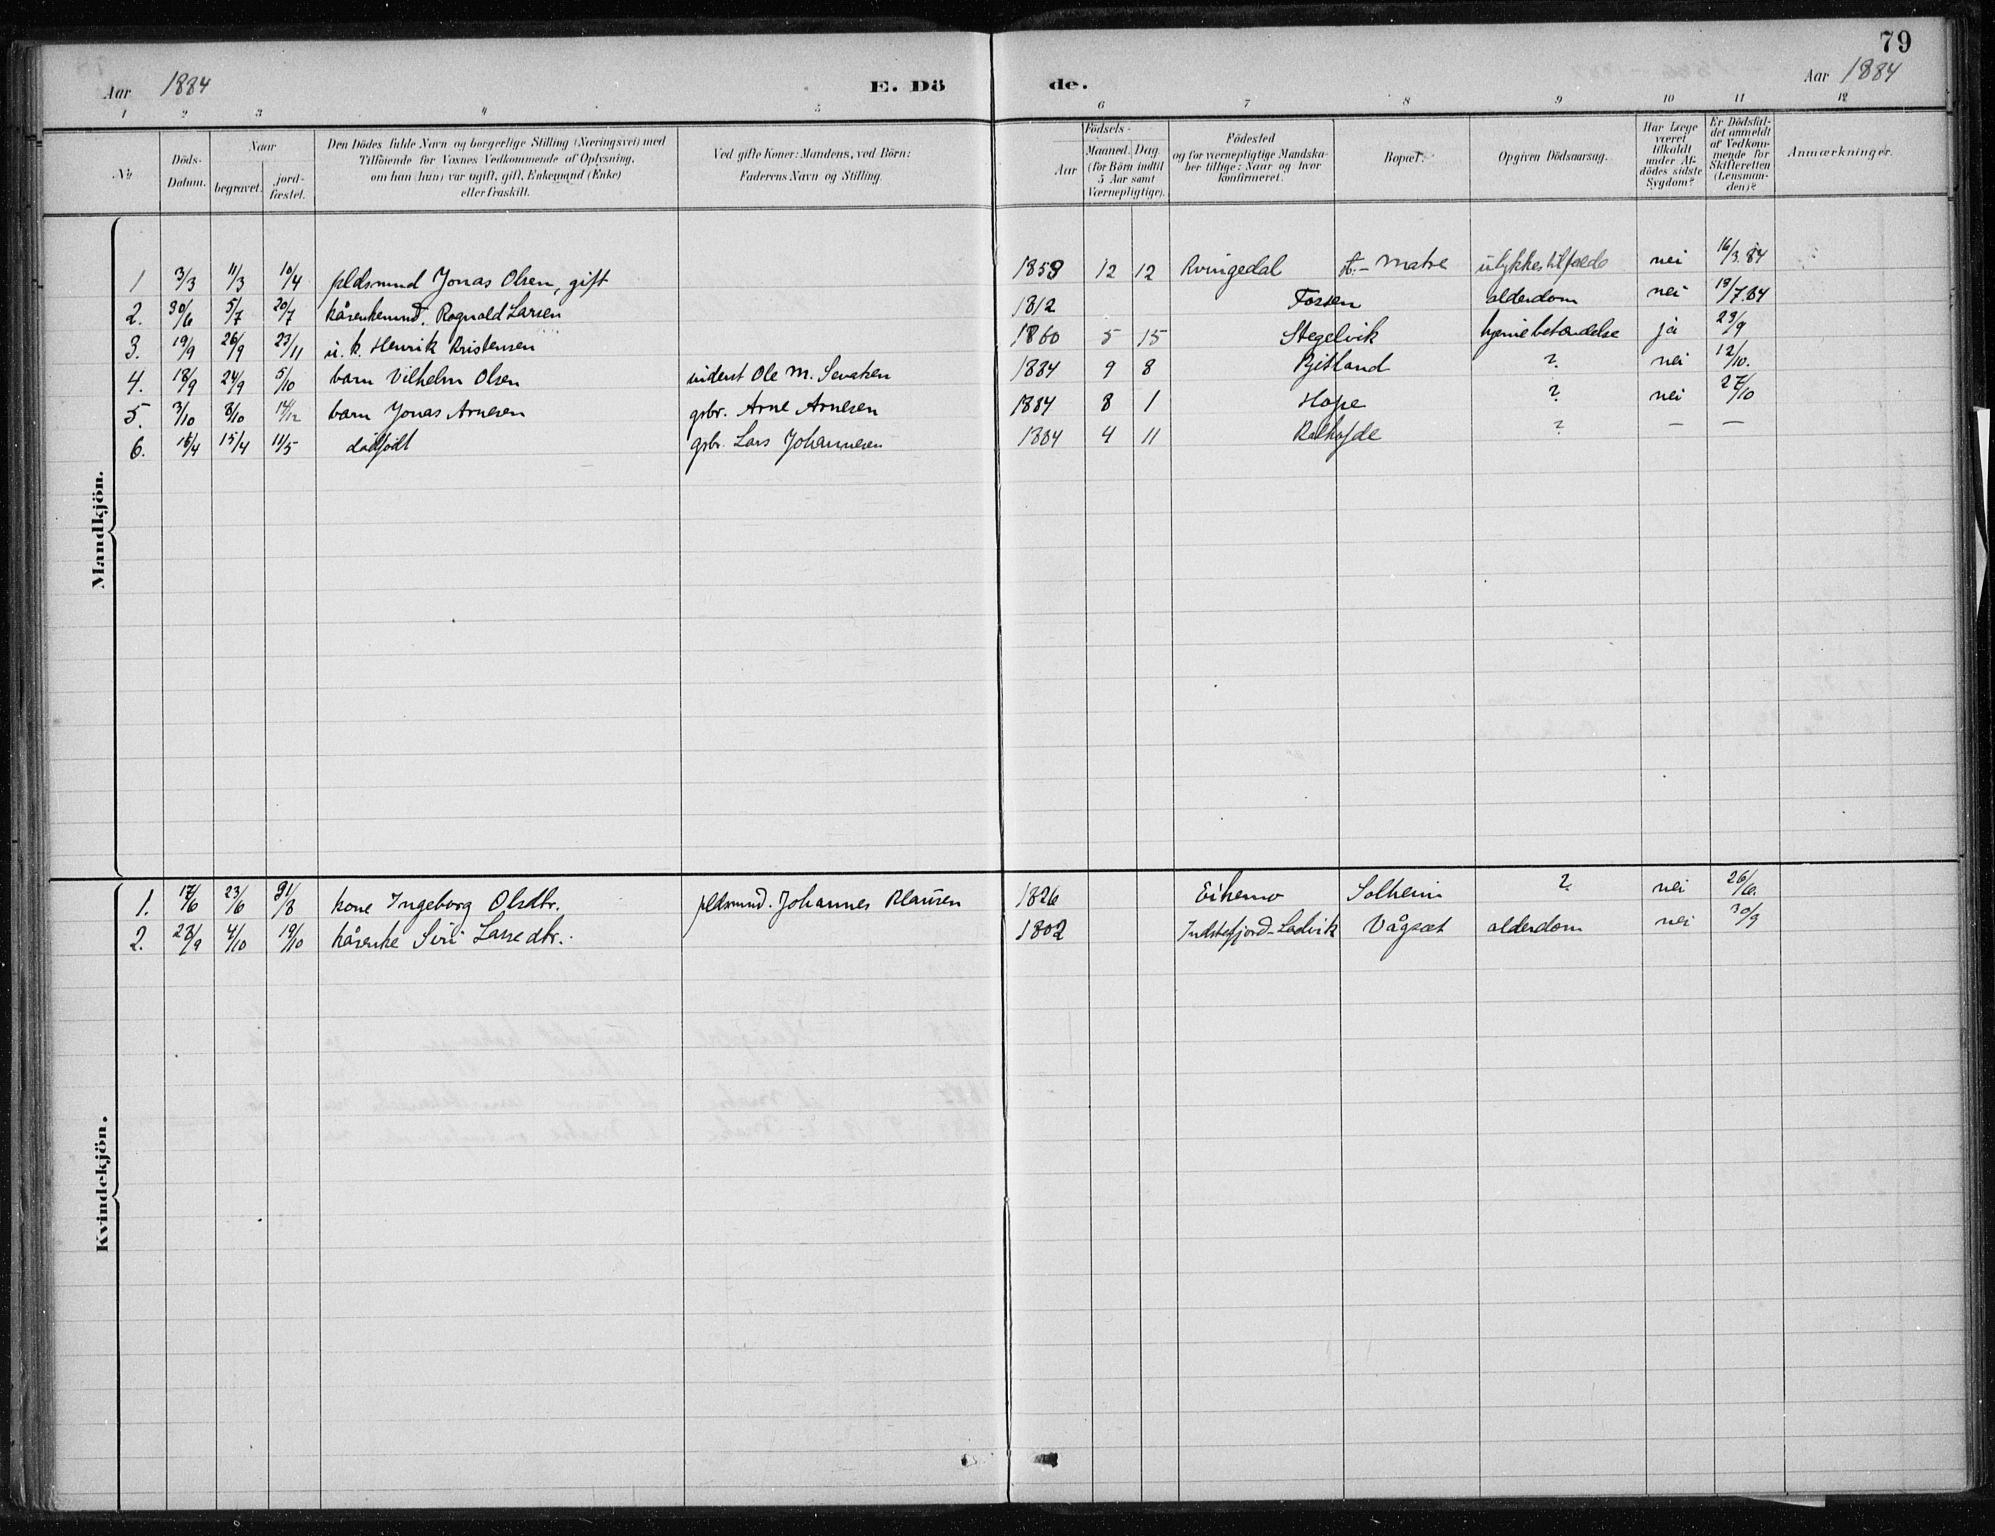 79
Aar 1884
E. Dö
de.
Aar 1884
1 2 3 4 5 6 7 8 9 10 11 12
No
Döds-Datum.
Naar
begravet.
jord-fæstet.
Den Dödes fulde Navn og borgerlige Stilling (Næringsvei) med
Tilföiende for Voxnes Vedkommende af Oplysning,
om han (hun) var ugift, gift, Enkemand (Enke)
eller fraskilt.
Ved gifte Koner: Mandens, ved Börn:
Faderens Navn og Stilling.
Födsels-
Aar
Maaned. Dag
(for Börn indtil
5 Aar samt
Værnepligtige).
Födested
og for værnepligtige Mandska-
ber tillige: Naar og hvor
konfirmeret.
Bopæl.
Opgiven Dödsaarsag.
Har Læge
været
tilkaldt
under Af-
dödes sidste
Sygdom?
Er Dödsfal-
det anmeldt
af Vedkom-
mende for
Skifteretten
(Lensman-
den)?
Anmærkninger.
Mandkjön.
1 3/3 11/3 10/4 pldsmnd Jonas Olsen, gift 1858 12 12 Kvingedal Matre ulykkestilfælde nei 16/3.84
2. 30/6 5/7 20/7 kårenkemnd. Rognald Larsen 1812 Fossen alderdom nei 13/7.84
3. 19/9 26/9 23/11 u. k. Henrik Kristensen 1860 5 15 Stegelvik hjernebetændelse ja 23/9
4. 18/9 24/9 5/10 barn Vilhelm Olsen inderst Ole M. 1884 9 8 ? nei 12/10.
5. 3/10 8/10 14/12 barn Jonas Arnesen gsbr. Arne Arnesen 1884 8 1 Hope ? nei 27/10
6. 15/4 15/4 11/5 dødfødt gsbr. Lars Johannesen 1884 4 11 ? — —
Kvindekjön.
1. 17/6 23/6 31/8 kone Ingeborg Olsdtr. pldsmnd. Johannes Klausen 1826 Eikemo Solheim ? nei 26/6.
2. 23/9 4/10 19/10 kårenke Siri Larsedtr. 1802 Indstefjord-Ladvik Vågsæt alderdom nei 30/9